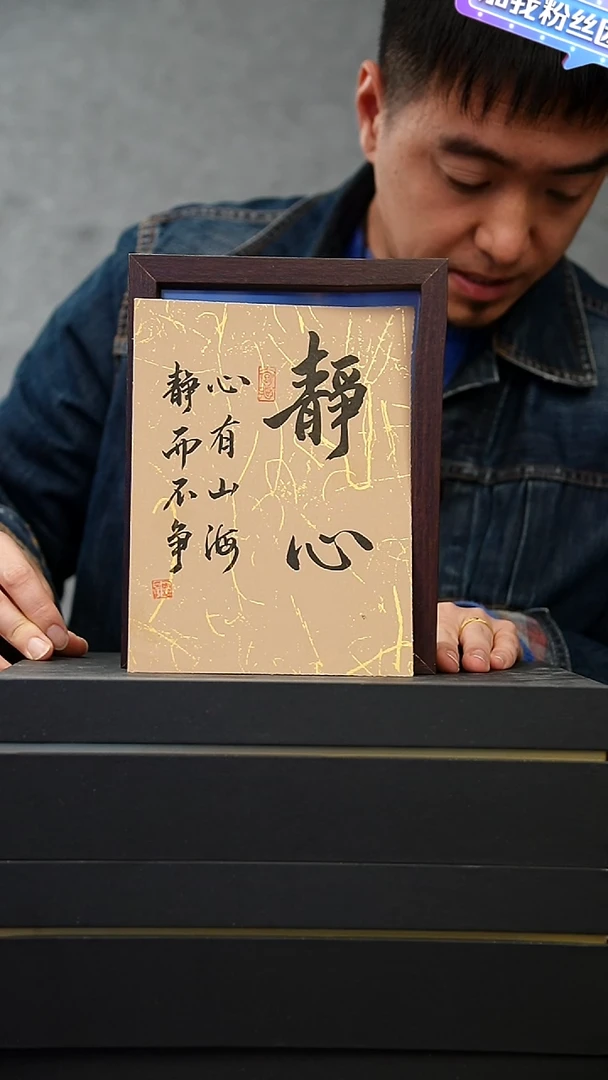 加我粉丝团
靜心
心有山海
靜而不争